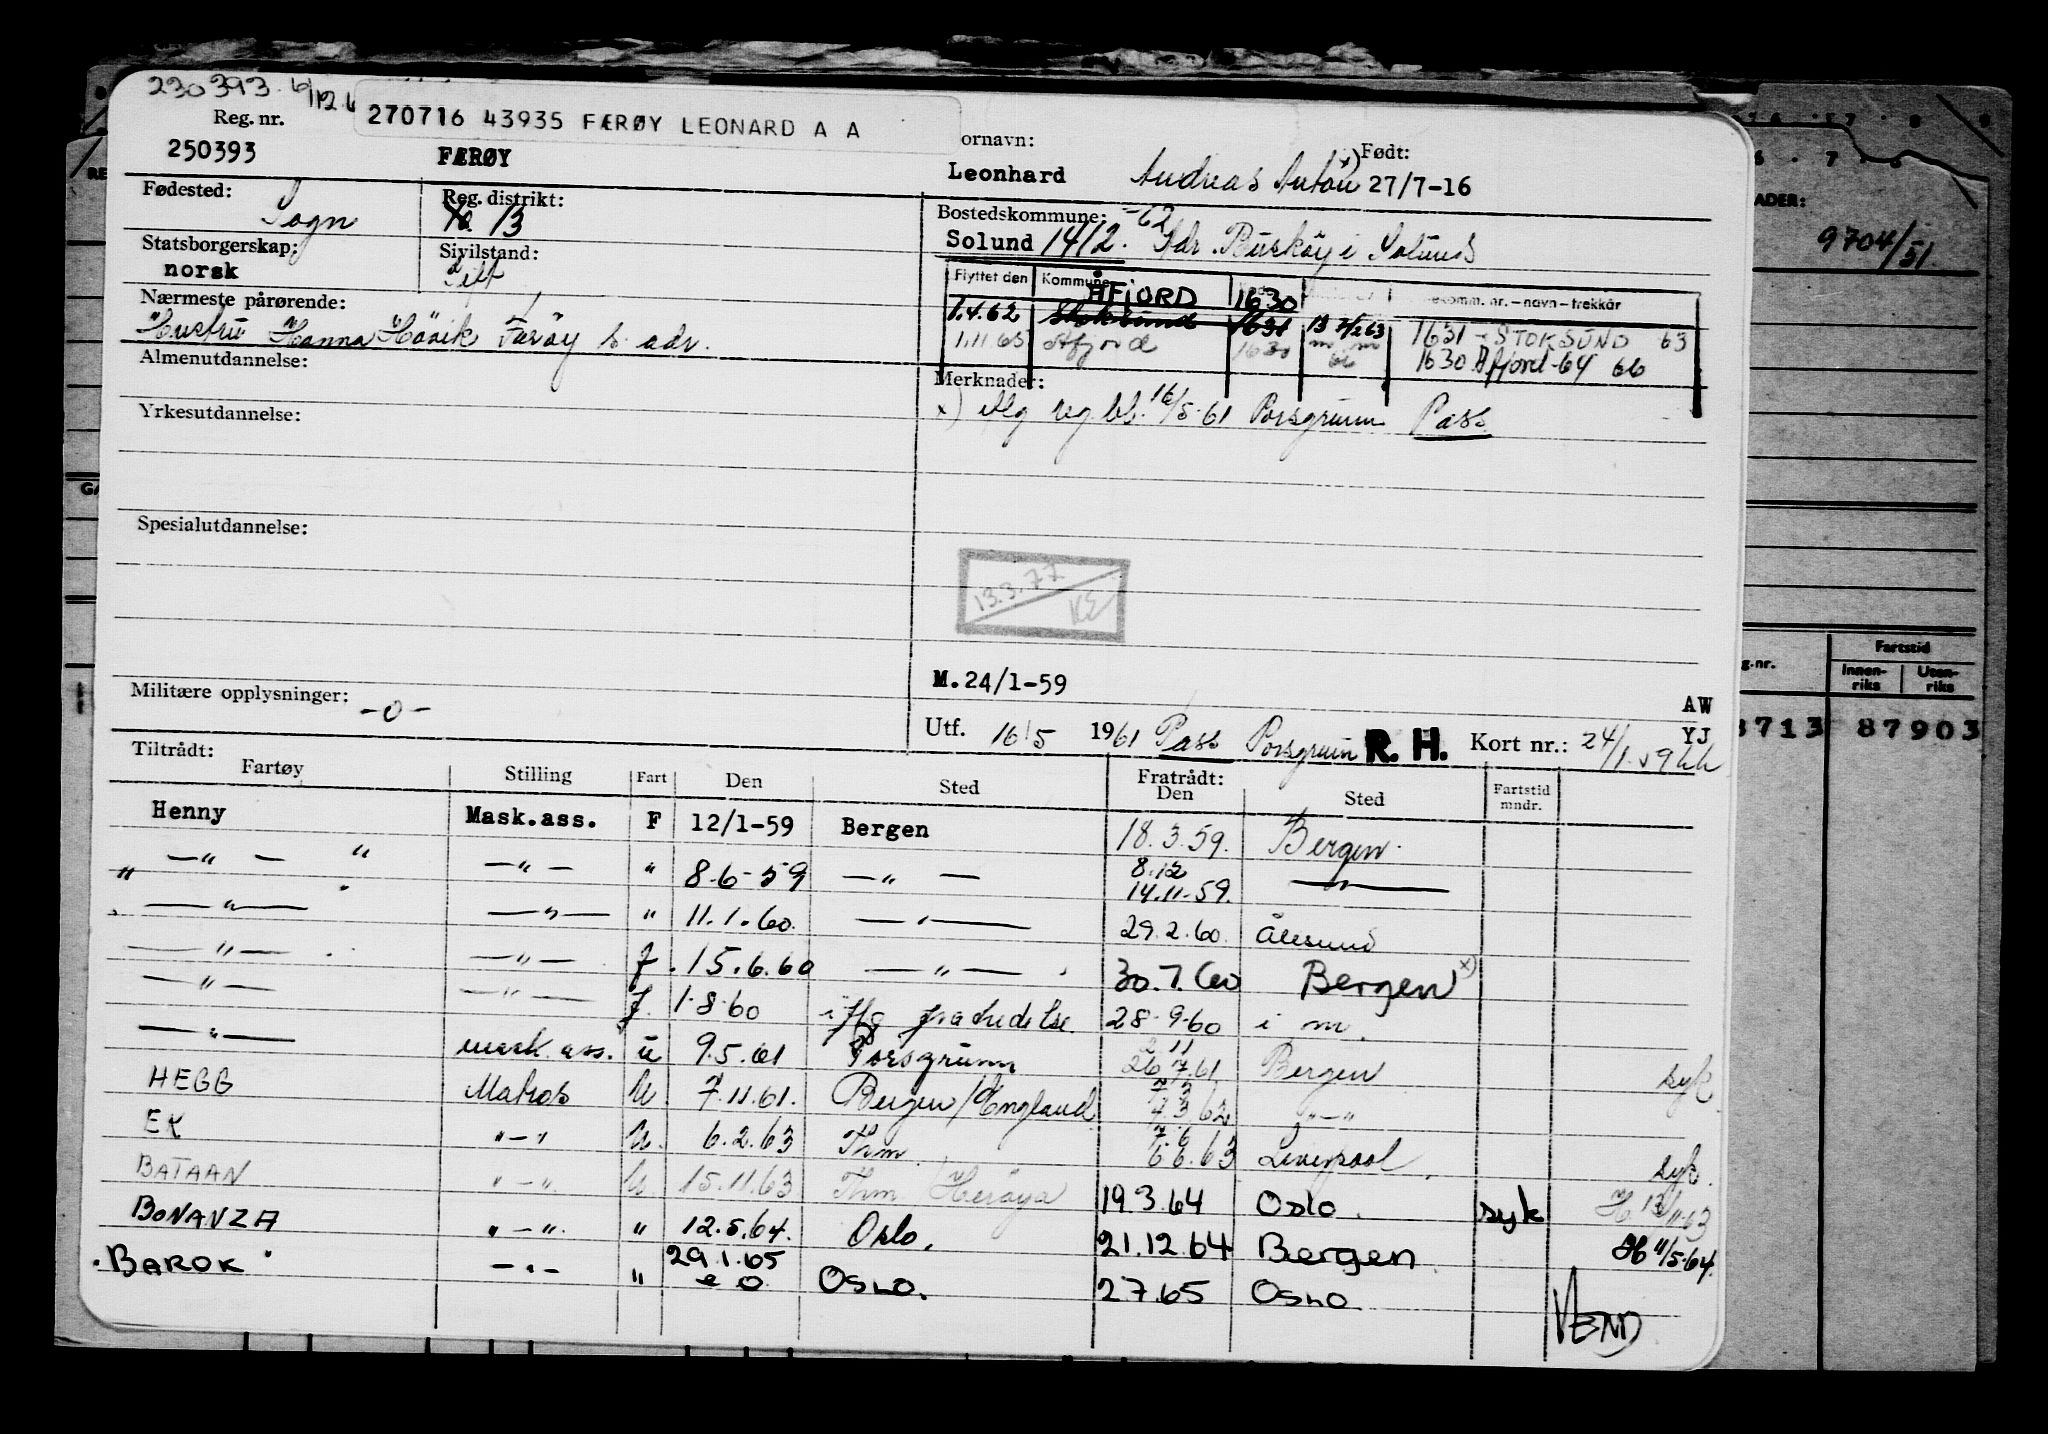 230393
270716 43935 FÆRØY LEONARD A A
Reg. nr. ornavn: Født:
250393 FÆRØY Leonhard Andreas Anton x) 27/7-16
Fødested: Sogn Reg. distrikt: 13 Bostedskommune: -62
Solund 1412. Adr. Buskøy i Solund
Statsborgerskap: norsk Sivilstand: Gift
Flyttet den Kommune ekomm. nr. – navn – trekkår
ÅFJORD 1630
1.4.62 Stoksund 1631 13 7/2 63 1631 - STOKSUND 63
1.11 65 Åfjord 1630 66 1630 Åfjord -64 66
Nærmeste pårørende:
Hustru Hanna Høvik Færøy s. adr.
Almenutdannelse:
Merknader:
x) Mlg reg. bl. 16/5-61 Porsgrunn Pass
Yrkesutdannelse:
Spesialutdannelse:
13.3.77 KE
M.24/1-59
Militære opplysninger: -0-
AW
YJ
Utf. 16/5 1961 Pass Porsgrunn R. H. Kort nr.: 24/1-59
Tiltrådt: Fratrådt:
Fartøy Stilling Fart Den Sted Den Sted Fartstid mndr.
Henny Mask.ass. F 12/1-59 Bergen 18.3.59. Bergen.
—"— " —"— " 8.6-59 —"— 8.12
14.11-59. —"—
—"— —"— " 11.1.60. —"— 29.2.60. Ålesund
—"— —"— f. 15.6.60 —"— 30.7.60 Bergen x)
—"— —"— f. 1.8.60 iflg fratredelse 28.9.60 i m.
—"— mask. ass. u 9.5.61 Porsgrunn 2 11
26.7.61 Bergen syk
HEGG Matros U. 7.11.61. Bergen/England 7.3
4.3.62 "—"
EK "—" U. 6.2.63 Trm. 7.6
6.6.63 Liverpool syk.
BATAAN "—" U. 15.11.63 Trm/Herøya 19.3.64 Oslo. syk H 13/11-63
BONANZA "—" " 12.5.64. Oslo. 21.12.64 Bergen H 11/5-64.
"BAROK" —"— " 29.1.65
e o Oslo. 2.7.65 Oslo
VEND
ADER:
9704/51
g.nr. Fartstid
Innen-riks Uten-riks
3713 87903